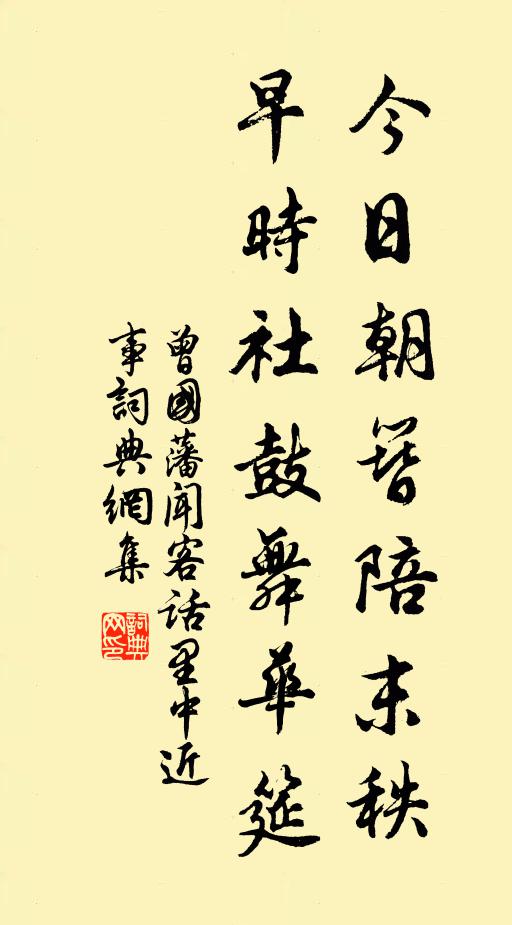 今日朝簪陪末秩
早時社鼓舞華筵
曾國藩聞客話里中近
事詞典網集
詞典
网印